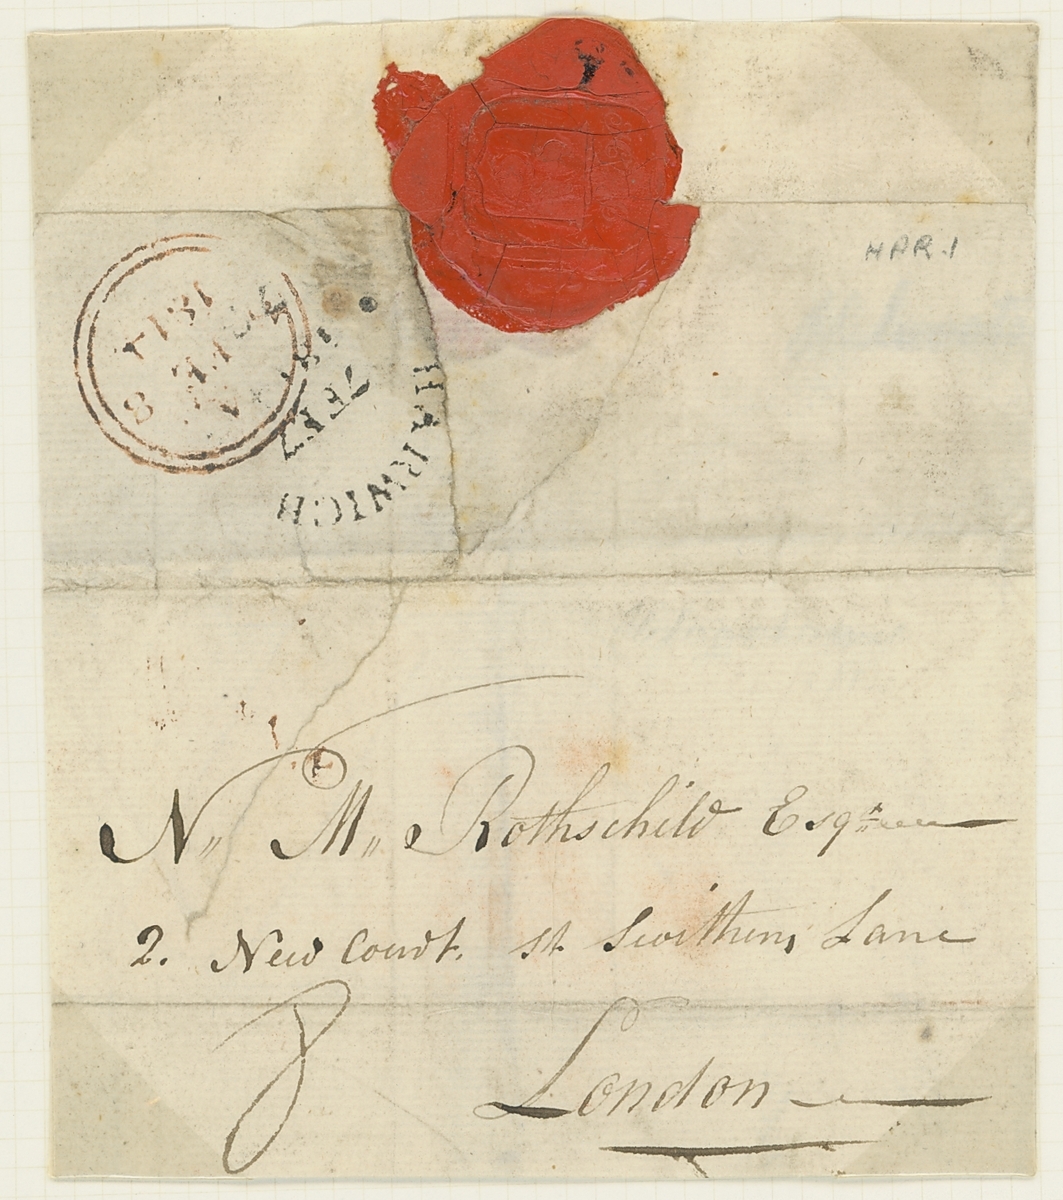 HAR.1
HARWICH
7 FE 7
8
1814
N. M. Rothschild Esqre
2. New Court. St. Swithins Lane
8
London